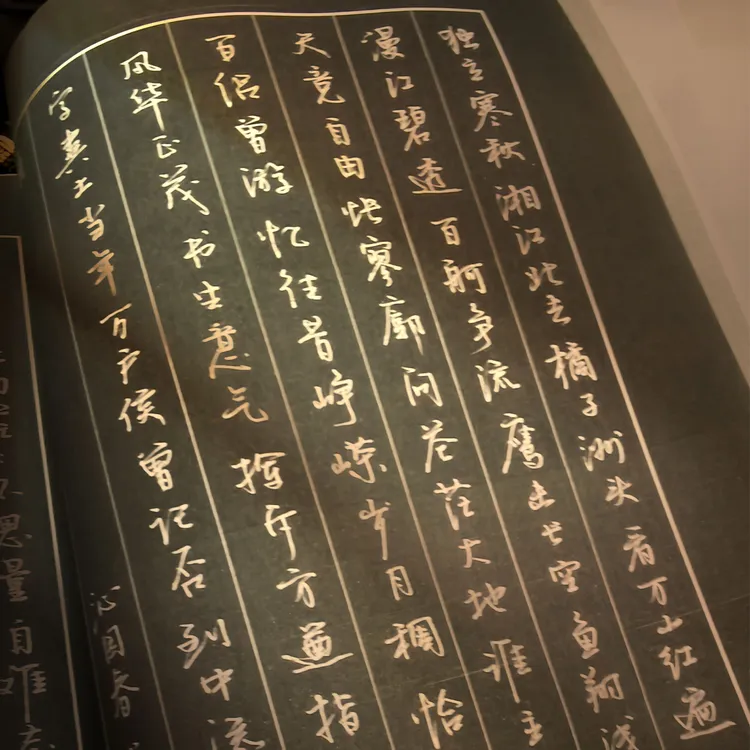 独立寒秋湘江北去橘子洲头看万山红遍
漫江碧透百舸争流鹰击长空鱼翔浅
天竞自由怅寥廓问苍茫大地谁主
百侣曾游忆往昔峥嵘岁月稠恰
风华正茂书生意气挥斥方遒指
字粪土当年万户侯曾记否到中流
沁园春
思量自难